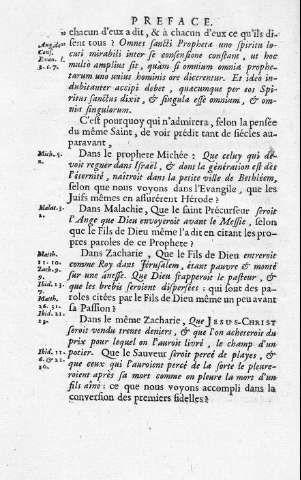 PREFACE.
chacun d'eux a dit, & à chacun d'eux ce qu'ils di-
sent tous ? Omnes sancti Propheta uno spiritu lo-
cuti mirabili inter se consensione constant, ut hoc
multo amplius sit, quàm si omnium omnia prophe-
tarum unus unius hominis ore dicerentur. Et ideo in-
dubitanter accipi debet, quæcumque per eos Spi-
ritus sanctus dixit, & singula esse omnium, & om-
nia singulorum.
C'est pourquoy qui n'admirera, selon la pensée
du même Saint, de voir prédit tant de siécles au-
paravant,
Mich. 5.
2.
Dans le prophete Michée : Que celuy qui de-
voit regner dans Israël, & dont la génération est dés
l'éternité, naîtroit dans la petite ville de Bethléem,
selon que nous voyons dans l'Evangile, que les
Juifs mêmes en assurérent Hérode ?
Malac. 3.
Dans Malachie, Que le saint Précurseur seroit
l'Ange que Dieu envoyeroit avant le Messie, selon
que le Fils de Dieu même l'a dit en citant les pro-
pres paroles de ce Prophete ?
Matth.
21. 10.
Zach. 9.
9.
Ibid. 13.
7.
Matth.
26. 31.
Dans Zacharie, Que le Fils de Dieu entreroit
comme Roy dans Jérusalem, étant pauvre & monté
sur une ânesse. Que Dieu frapperoit le pasteur, &
que les brebis seroient dispersées : qui sont des pa-
roles citées par le Fils de Dieu même un peu avant
sa Passion ?
Ibid. 11.
Dans le même Zacharie, Que JESUS-CHRIST
seroit vendu trente deniers, & que l'on acheteroit du
prix pour lequel on l'auroit livré, le champ d'un
potier. Que le Sauveur seroit percé de playes, &
que ceux qui l'auroient percé de la sorte le pleure-
roient aprés sa mort comme on pleure la mort d'un
fils aîné : ce que nous voyons accompli dans la
conversion des premiers fidelles ?